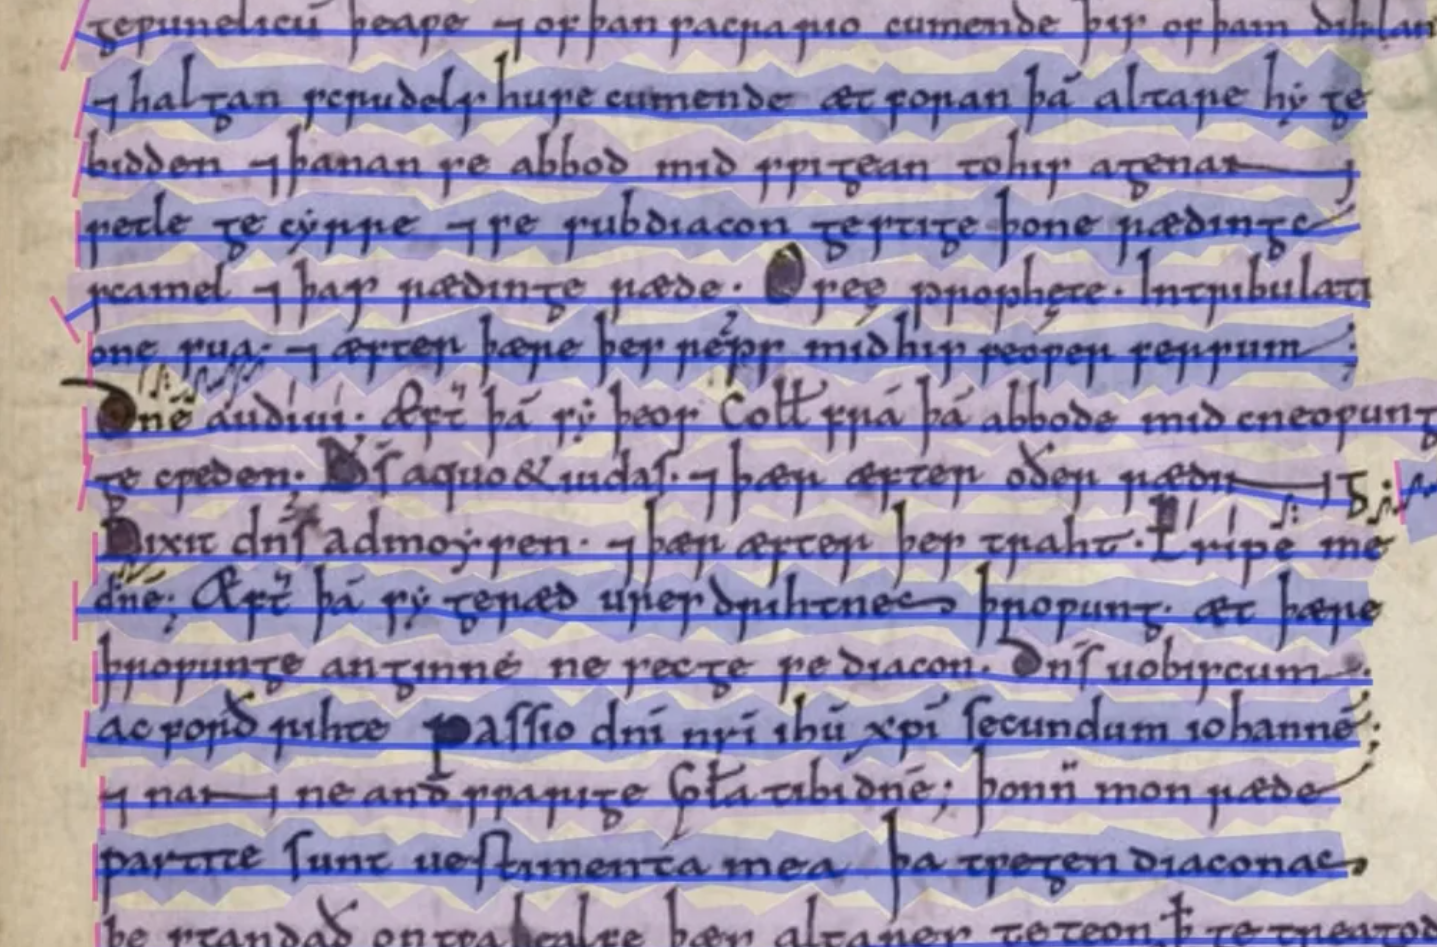 gewunelicū þeawe ⁊ of þan sacrario cumende þis of þam dihlan
⁊ halgan scrudelshuse cumende æt foran þā altare hẏ ge
bidden ⁊ þanan se abbod mid swigean to his agenan
setle ge cẏrre ⁊ se subdiacon gestige þone rædingc
scamel ⁊ þas rædinge ræde. Osęę prophęte. Intribulati
one sua. ⁊ æfter þære þes reps mid his feower fersum
Dnē audiui. Æft̄ þā sẏ þeos Coƚƚ frā þā abbode mid cneowung
ge cweden. Ds̄ aquo & iudas. ⁊ þær æfter oðer rædi
Dixit dns̄ admoẏsen. ⁊ þær æfter þes traht. Eripe me
dn̄e; Æft̄ þā sẏ geræd ures drihtnes þrowung. æt þære
þrowunge anginne ne secge se diacon. Dns̄ uobiscum
ac forð rihte passio dn̄i nr̄i ihū xp̄i secundum iohannē;
⁊ nan ne andswarige Gƚa tibi dn̄e; þonn̄ mon ræde
partite sunt uestimenta mea þa twegen diaconas
þe standað on twa healfe þæs altares geteon ꝥ